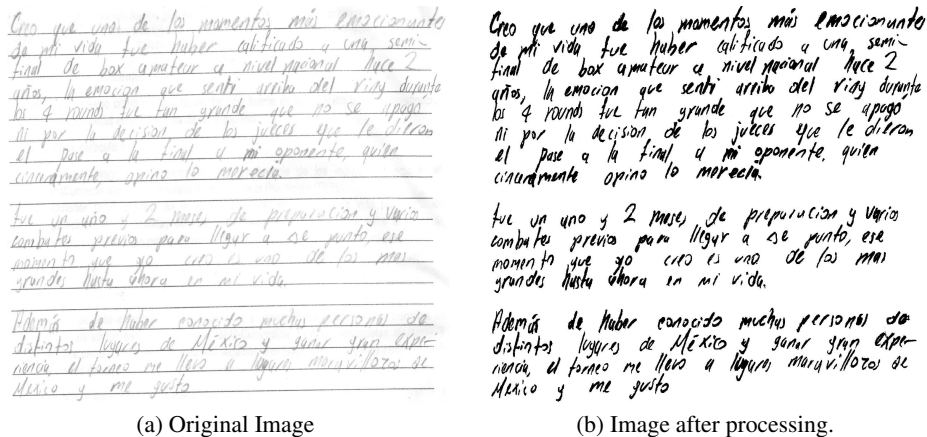 Creo que uno de los momentos más emocionantes
de mi vida fue haber calificado a una semi-
final de box amateur a nivel nacional hace 2
años, la emocion que senti arriba del ring durante
los 4 rounds fue tan grande que no se apagó
ni por la decision de los jueces que le dieron
el pase a la final a mi oponente, quien
cinceramente, opino lo merecia.
fue un año y 2 meses de preparacion y varios
combates previos para llegar a ese punto, ese
momento que yo creo es uno de los mas
grandes hasta ahora en mi vida.
Además de haber conocido muchas personas de
distintos lugares de México y ganar gran exper-
riencia, el torneo me llevo a lugares maravillozos de
México y me gusto
Creo que uno de los momentos más emocionantes
de mi vida fue haber calificado a una semi-
final de box amateur a nivel nacional hace 2
años, la emocion que senti arriba del ring durante
los 4 rounds fue tan grande que no se apagó
ni por la decision de los jueces que le dieron
el pase a la final a mi oponente, quien
cinceramente opino lo merecia.
fue un año y 2 meses de preparacion y varios
combates previos para llegar a ese punto, ese
momento que yo creo es uno de los mas
grandes hasta ahora en mi vida.
Además de haber conocido muchas personas de
distintos lugares de México y ganar gran exper-
riencia, el torneo me llevo a lugares maravillozos de
México y me gusto
(a) Original Image
(b) Image after processing.